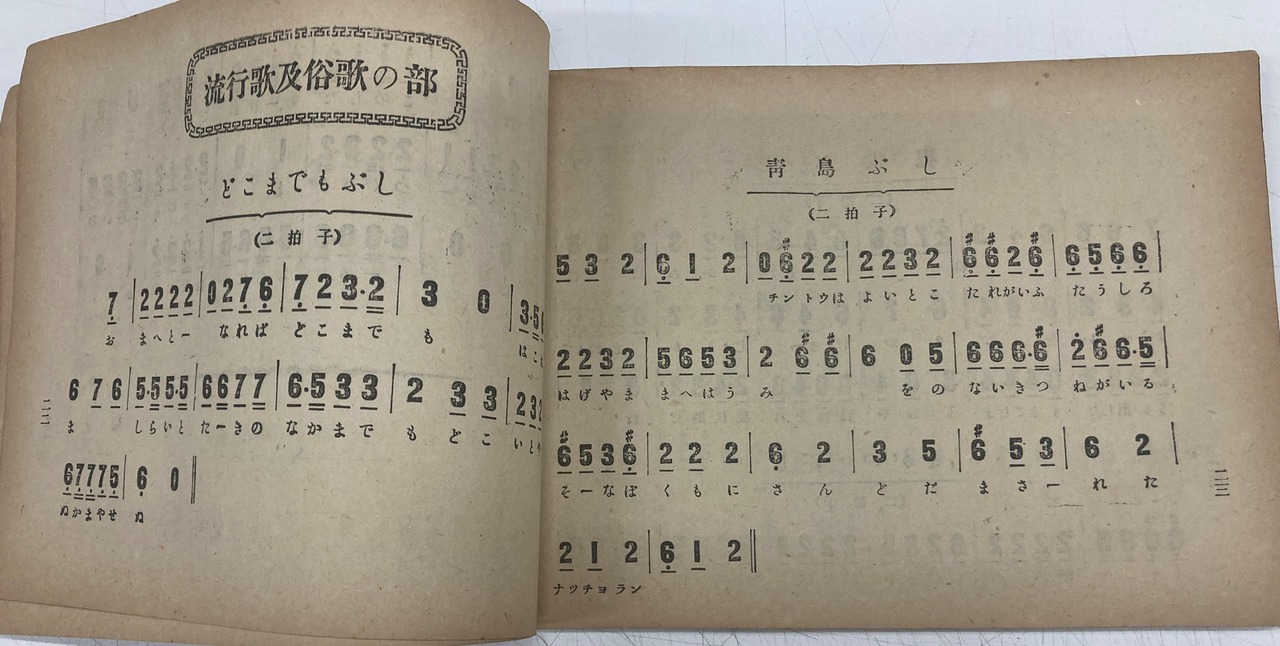 流行歌及俗歌の部
どこまでもぶし
(二拍子)
7 | 2 2 2 2 | 0 2 7 6 | 7 2 3·2 | 3 0 | 3·5
お まへとー なれば どこまで も はこ
6 7 6 | 5·5 5·5 | 6 6 7 7 | 6·5 3 3 | 2 3 3 | 2 3 2
ま しらいと たーきの なかまで も どこ いとや
6 7 7 7 5 | 6 0
ぬかまやせ ぬ
二二
青島ぶし
(二拍子)
5 3 2 | 6 1 2 | 0 #6 2 2 | 2 2 3 2 | #6 #6 2 #6 | 6 5 6 6 |
チントウは よいとこ たれがいふ たうしろ
2 2 3 2 | 5 6 5 3 | 2 #6 #6 | 6 0 5 | 6 6 6·#6 | 2 #6 6·5 |
はげやま まへはうみ をの ないきつ ねがいる
#6 5 3 #6 | 2 2 2 | 6 2 | 3 5 | #6 5 3 | 6 2 |
そーなぼ くもに さん どだ まさー れた
2 1 2 | 6 1 2
ナツチョラン
二三